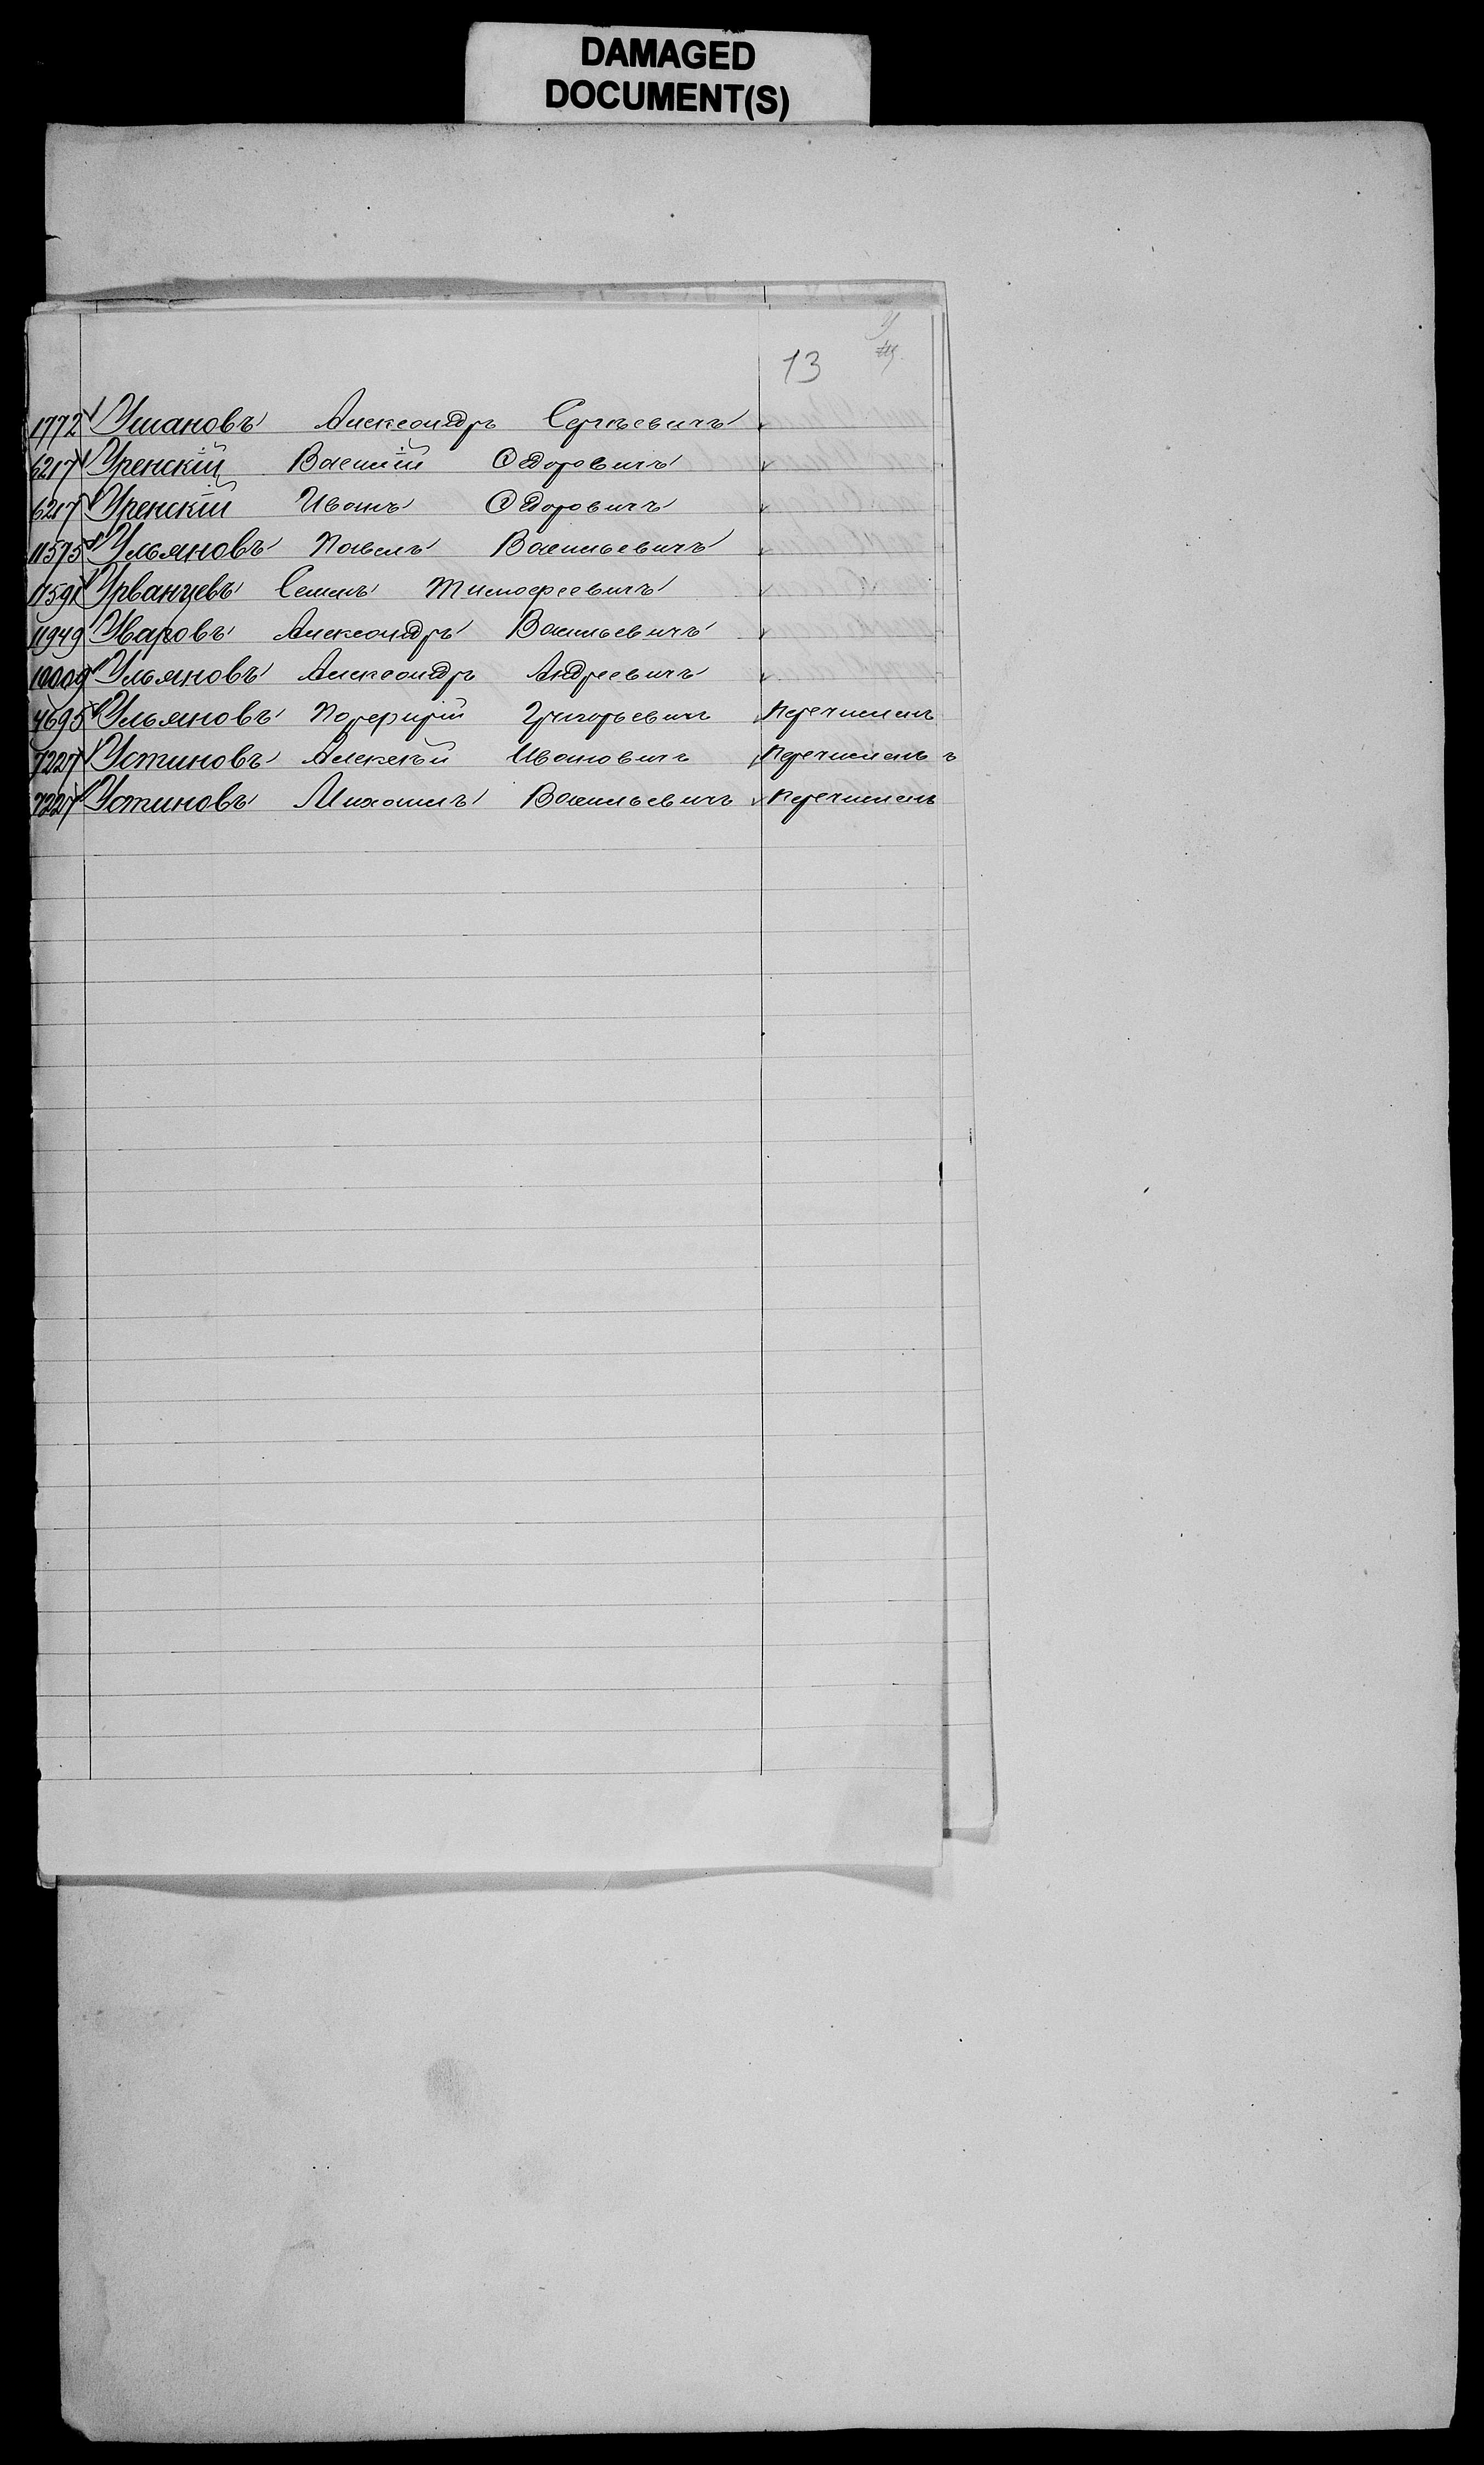 DAMAGED
DOCUMENT(S)
У
13
1772 Ушановъ Александръ Сергѣевичъ
6217 Уренскій Василій Ѳедоровичъ
6217 Уренскій Иванъ Ѳедоровичъ
11575 Ульяновъ Павелъ Васильевичъ
11591 Урванцевъ Семенъ Тимофеевичъ
11949 Уваровъ Александръ Васильевичъ
10009 Ульяновъ Александръ Андреевичъ
4695 Ульяновъ Порфирій Григорьевичъ перечисленъ
7227 Устиновъ Алексѣй Ивановичъ перечисленъ
7227 Устиновъ Михаилъ Васильевичъ перечисленъ